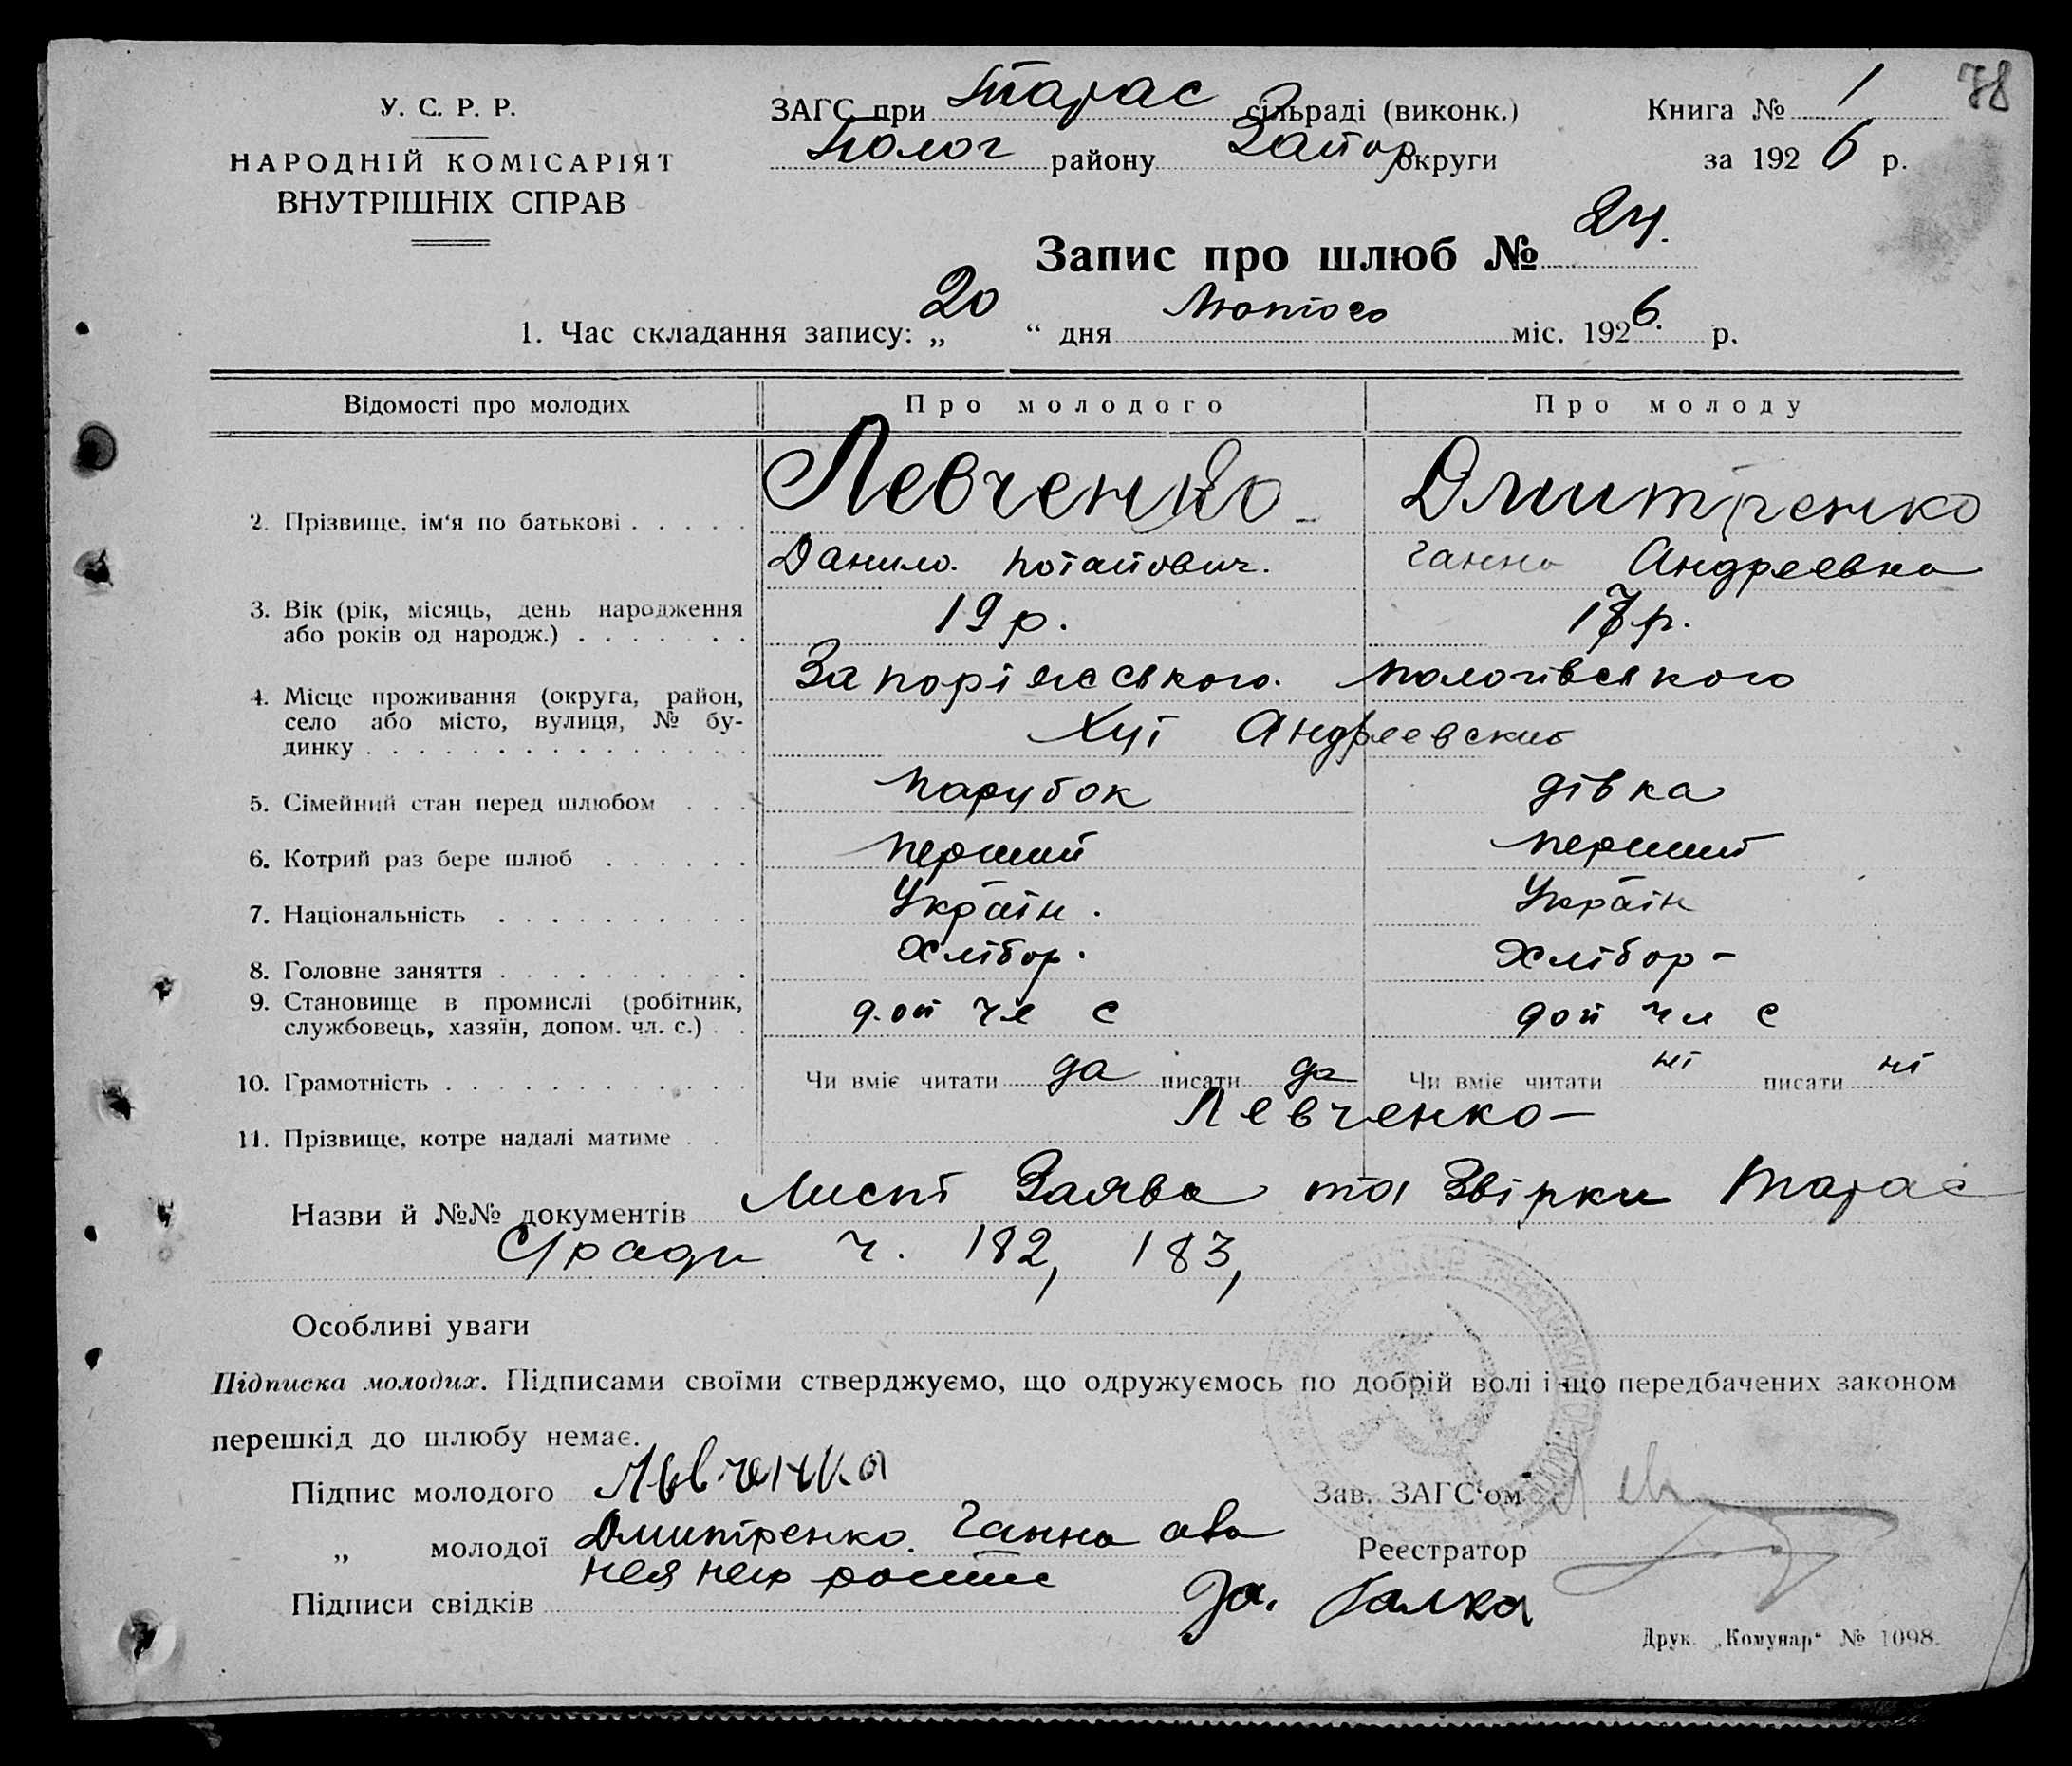 78
У. С. Р. Р.
НАРОДНІЙ КОМІСАРІЯТ
ВНУТРІШНІХ СПРАВ
ЗАГС при Тарас сільраді (виконк.)
Полог району Запор округи
Книга № 1
за 1926 р.
Запис про шлюб № 24.
1. Час складання запису: „ 20 “ дня Лютого міс. 1926. р.
Відомості про молодих Про молодого Про молоду
2. Прізвище, ім‘я по батькові Левченко Дмитренко
Данило. Потапович. Ганна Андреевна
3. Вік (рік, місяць, день народження
або років од народж.) 19 р. р.
4. Місце проживання (округа, район,
село або місто, вулиця, № бу-
динку Запоріжського. Пологівського
Хут Андреевский
5. Сімейний стан перед шлюбом парубок дівка
6. Котрий раз бере шлюб перший перший
7. Національність Україн. Україн
8. Головне заняття хлібор. хлібор-
9. Становище в промислі (робітник,
службовець, хазяїн, допом. чл. с.) доп чл с доп чл с
10. Грамотність Чи вміє читати да писати да Чи вміє читати ні писати ні
11. Прізвище, котре надалі матиме Левченко-
Назви й №№ документів Лист Заява та Звірки Тарас
С/ради ч. 182, 183,
Особливі уваги
Підписка молодих. Підписами своїми стверджуємо, що одружуємось по добрій волі і що передбачених законом
перешкід до шлюбу немає.
Підпис молодого Левченко
„ молодої Дмитренко. Ганна
Підписи свідків За. Галка
Зав. ЗАГС‘ом
Реєстратор
Друк. „Комунар“ № 1098.